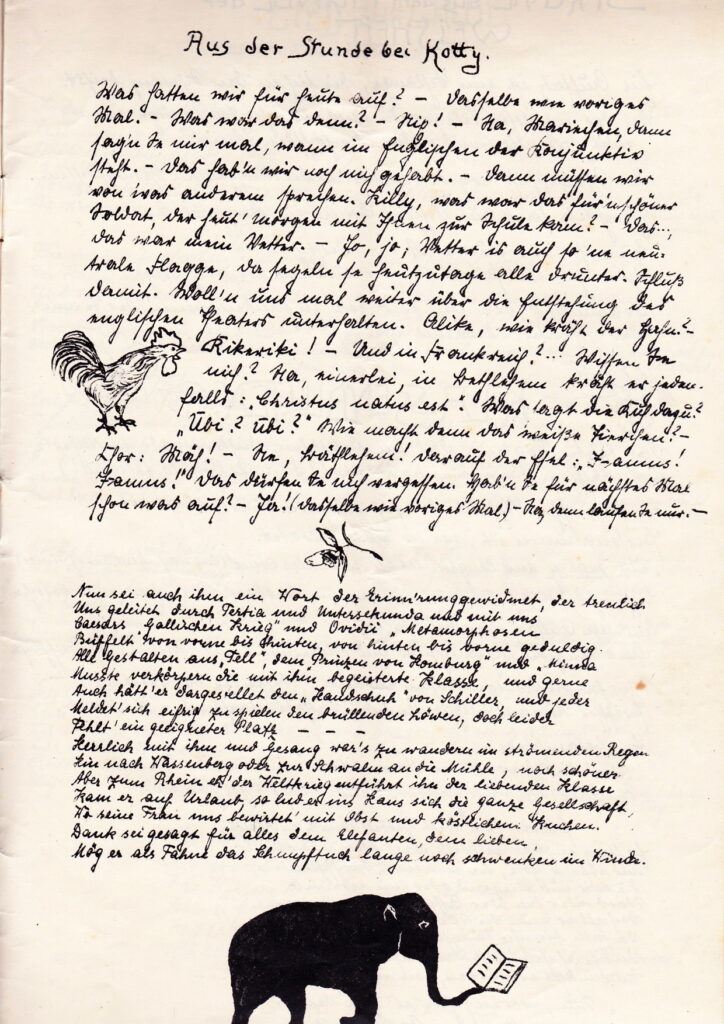 Aus der Stunde bei Kotty.
Was hatten wir für heute auf? – Dasselbe wie voriges
Mal. – Was war das denn? – Nix! – Na, Mariechen, dann
sag'n Se mir mal, wann im Englischen der Konjunktiv
steht. – Das hab'n wir noch nich gehabt. – Dann müssen wir
von was anderem sprechen. Killy, was war das für'n schöner
Soldat, der heut' morgen mit Ihnen zur Schule kam? – Das...,
das war mein Vetter. – Jo, jo; Vetter is auch so 'ne neu-
trale Flagge, da segeln se heutzutage alle drunter. Schluß
damit. Woll'n uns mal weiter über die Entstehung des
englischen Theaters unterhalten. Alike, wie kräht der Hahn? –
Kikeriki! – Und in Frankreich?... Wissen Se
nich? Na, einerlei, in Bethlehem kräht er jeden-
falls: „Christus natus est“. Was sagt die Kuh dazu?
„Ubi? Ubi?“ Wie macht denn das weiße Tierchen? –
Chor: Mäh! – Ne, Bäthlehem! Darauf der Esel: „Eamus!
Eamus!“ Das dürfen Se nich vergessen. Hab'n Se für nächstes Mal
schon was auf? – Ja! (dasselbe wie voriges Mal) – Na, denn laufen Se nur. –
Nun sei auch ihm ein Wort der Erinn'rung gewidmet, der treulich
Uns geleitet durch Tertia und Untersekunda und mit uns
Caesars „Gallischen Krieg“ und Ovidii „Metamorphosen
Büffelt' von vorne bis hinten, von hinten bis vorne geduldig.
All' Gestalten aus „Tell“, dem „Prinzen von Homburg“ und „Minna
Musste verkörpern die mit ihm begeisterte Klasse, und gerne
Auch hätt' er dargestellet den „Handschuh“ von Schiller, und jeder
Meldet' sich eifrig zu spielen den brüllenden Löwen, doch leider
Fehlt' ein geeigneter Platz – – –
Herrlich mit ihm und Gesang war's zu wandern im strömenden Regen
Hin nach Wassenberg oder zur Schwalm an die Mühle, noch schöner
Aber zum Rhein etc. der Weltkrieg entführt ihn der liebenden Klasse
Kam er auf Urlaub, so lud er ins Haus sich die ganze Gesellschaft,
Wo seine Frau uns bewirtet' mit Obst und köstlichem Kuchen.
Dank sei gesagt für alles dem Elefanten, dem lieben,
Mög er als Fahne das Schnupftuch lange noch schwenken im Winde.